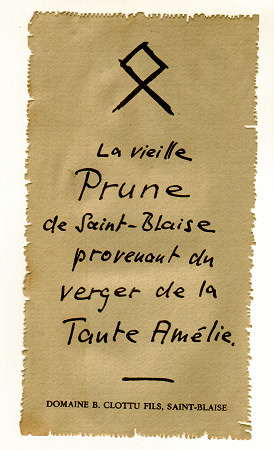 La vieille
Prune
de Saint-Blaise
provenant du
verger de la
Tante Amélie.
DOMAINE B. CLOTTU FILS, SAINT-BLAISE